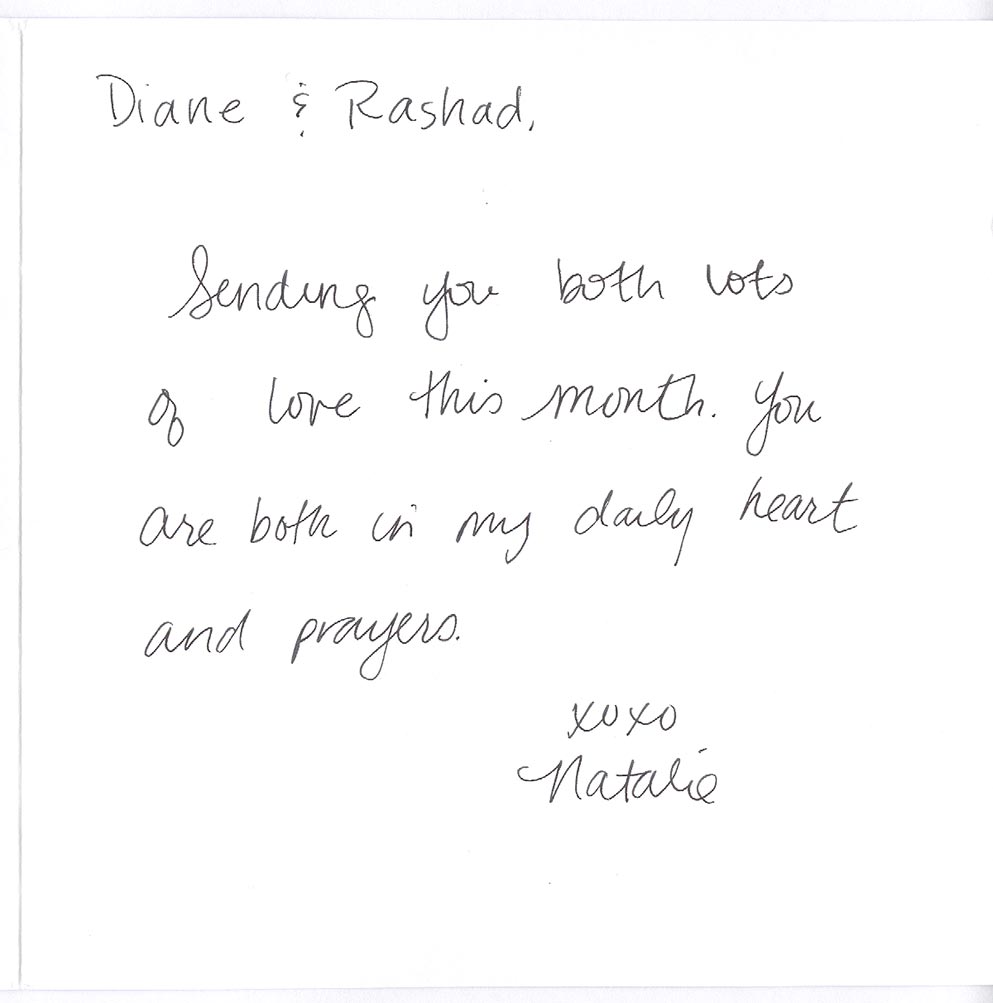 Diane & Rashad,
Sending you both lots
of love this month. You
are both in my daily heart
and prayers.
xoxo
Natalie